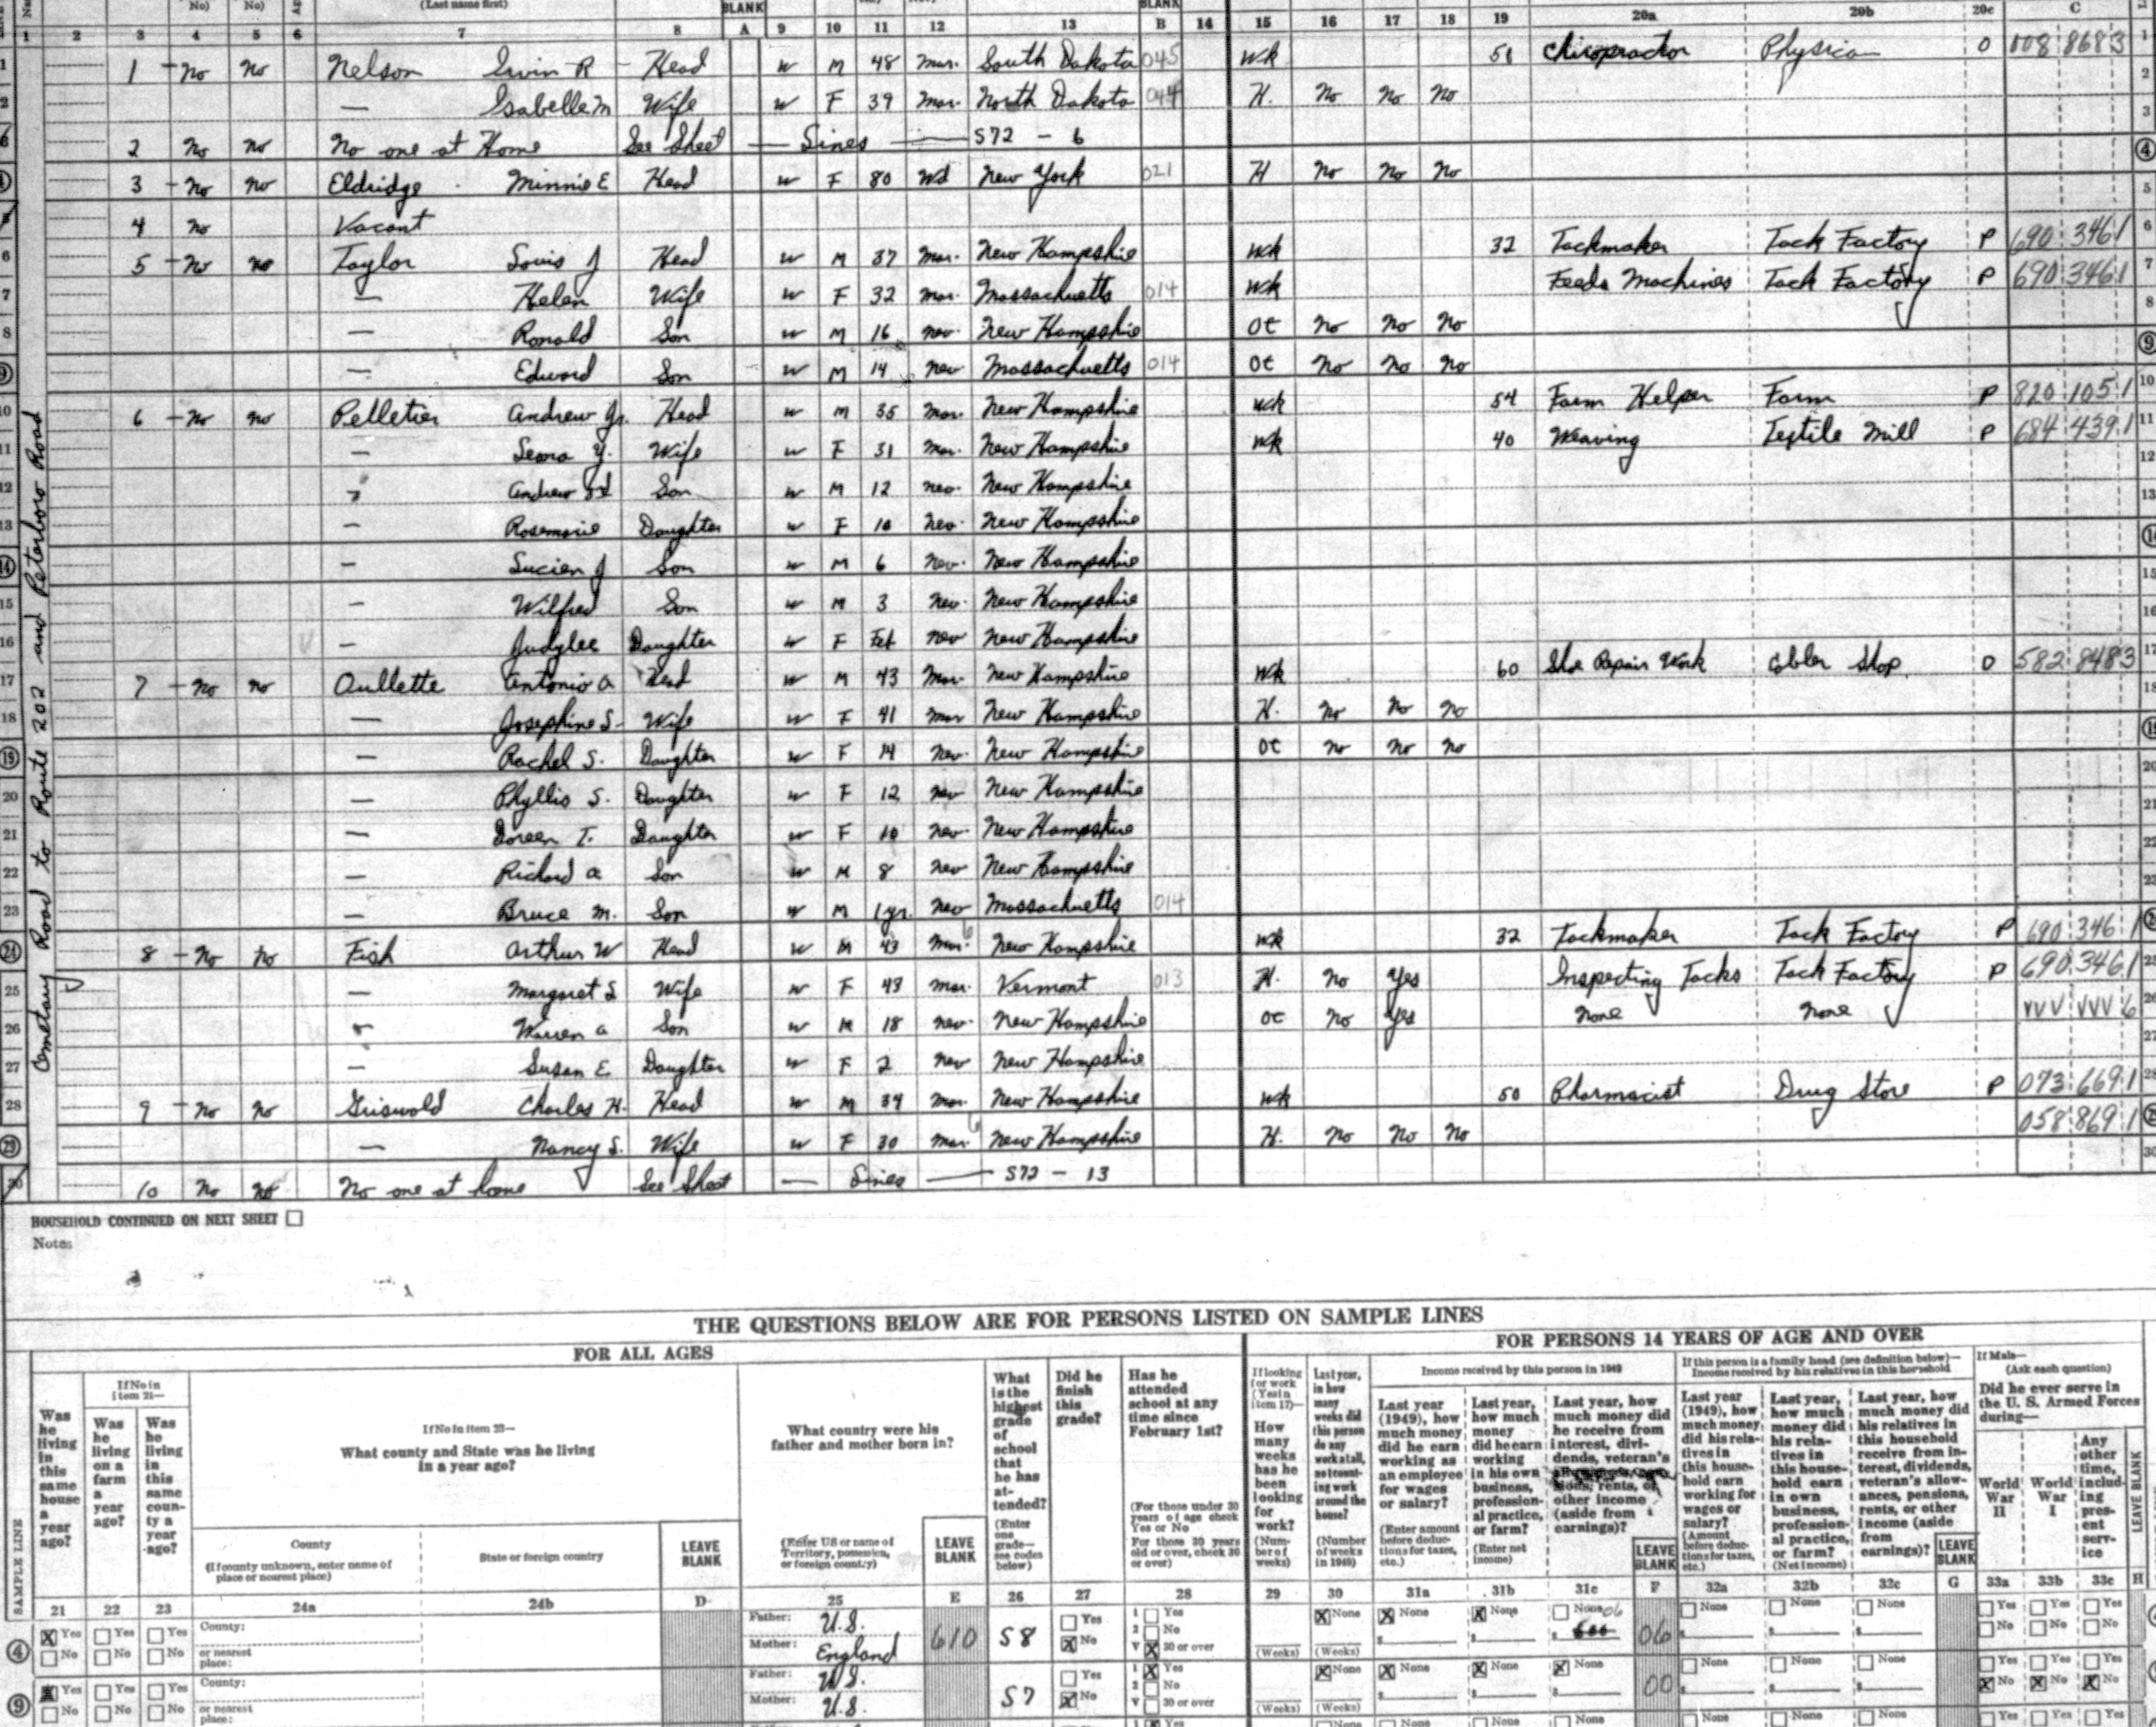 No) No) (Last name first) BLANK BLANK
1 2 3 4 5 6 7 8 A 9 10 11 12 13 B 14 15 16 17 18 19 20a 20b 20c C
Cemetary Road to Route 202 and Peterboro Road
1 1 - No No Nelson Irvin R - Head W M 48 mar. South Dakota 045 Wk 51 Chiropractor Physician O 008 868 3 1
2 — Isabelle M Wife W F 39 mar. North Dakota 044 H. No No No 2
2 No No No one at Home See Sheet — Lines — S72 - 6 3
3 - No No Eldridge Minnie E Head W F 80 Wd New York 021 H No No No 4
4 No Vacant 5
6 5 - No No Taylor Louis J Head W M 37 mar. New Hampshire Wk 32 Tackmaker Tack Factory P 690 346 1 6
7 — Helen Wife W F 32 mar. Massachuetts 014 Wk Feeds Machines Tack Factory P 690 346 1 7
8 — Ronald Son W M 16 nev. New Hampshire Ot No No No 8
9 — Edward Son W M 14 nev Massachuetts 014 Ot No No No 9
10 6 - No No Pelletier Andrew Jr. Head W M 35 mar. New Hampshire Wk 54 Farm Helper Farm P 820 105 1 10
11 — Y. Wife W F 31 mar. New Hampshire Wk 40 Weaving Textile Mill P 684 439 1 11
12 Andrew Son W M 12 nev. New Hampshire 12
13 — Rosemarie Daughter W F 10 nev. New Hampshire 13
14 — Lucien J Son W M 6 nev. New Hampshire 14
15 — Wilfred Son W M 3 nev. New Hampshire 15
16 — Judylee Daughter W F Feb nev New Hampshire 16
17 7 - No No Oullette Antonio A Head W M 43 Mar. New Hampshire Wk 60 Shoe Repair Work Cobler Shop. O 582 848 3 17
18 — Josephine S. Wife W F 41 mar New Hampshire H. No No No 18
19 — Rachel S. Daughter W F 14 nev. New Hampshire Ot No No No 19
20 — Phyllis S. Daughter W F 12 nev New Hampshire 20
21 — Doreen T. Daughter W F 10 nev. New Hampshire 21
22 — Richard A Son W M 8 nev New Hampshire 22
23 — Bruce M. Son W M 1yr. nev Massachuetts 014 23
24 8 - No No Fish Arthur W Head W M 43 mar. New Hampshire Wk 32 Tackmaker Tack Factory P 690 346 1
25 — Margaret L Wife W F 43 mar. Vermont 013 H. No Yes Inspecting Tacks Tack Factory P 690 346 1 25
26 Warren A Son W M 18 nev. New Hampshire Ot No Yes None None VVV VVV 6 26
27 — Susan E Daughter W F 2 nev New Hampshire 27
28 9 - No No Griswold Charles H. Head W M 34 mar. New Hampshire Wk 50 Pharmacist Drug Store P 073 669 1 28
29 — Nancy S. Wife W F 30 mar New Hampshire H. No No No 058 869 1
30 10 No No No one at home See Sheet — Lines — S72 - 13 30
HOUSEHOLD CONTINUED ON NEXT SHEET
Notes
THE QUESTIONS BELOW ARE FOR PERSONS LISTED ON SAMPLE LINES
FOR ALL AGES
FOR PERSONS 14 YEARS OF AGE AND OVER
SAMPLE LINE
Was he living in this same house a year ago?
If No in item 21—
Was he living on a farm a year ago?
Was he living in this same county a year ago?
If No in item 23—
What county and State was he living in a year ago?
County
(If county unknown, enter name of place or nearest place)
State or foreign country
LEAVE BLANK
What country were his father and mother born in?
(Enter US or name of Territory, possession, or foreign country)
LEAVE BLANK
What is the highest grade of school that he has attended?
(Enter one grade—see codes below)
Did he finish this grade?
Has he attended school at any time since February 1st?
(For those under 30 years of age check Yes or No
For those 30 years old or over, check 30 or over)
If looking for work (Yes in item 17)—
How many weeks has he been looking for work?
(Number of weeks)
Last year, in how many weeks did this person do any work at all, not counting work around the house?
(Number of weeks in 1949)
Income received by this person in 1949
Last year (1949), how much money did he earn working as an employee for wages or salary?
(Enter amount before deductions for taxes, etc.)
Last year, how much money did he earn working in his own business, professional practice, or farm?
(Enter net income)
Last year, how much money did he receive from interest, dividends, veteran's rents, or other income (aside from earnings)?
LEAVE BLANK
If this person is a family head (see definition below)—
Income received by his relatives in this household
Last year (1949), how much money did his relatives in this household earn working for wages or salary?
(Amount before deductions for taxes, etc.)
Last year, how much money did his relatives in this household earn in own business, professional practice, or farm?
(Net income)
Last year, how much money did his relatives in this household receive from interest, dividends, veteran's allowances, pensions, rents, or other income (aside from earnings)?
LEAVE BLANK
If Male—
(Ask each question)
Did he ever serve in the U. S. Armed Forces during—
World War II
World War I
Any other time, including present service
LEAVE BLANK
21 22 23 24a 24b D 25 E 26 27 28 29 30 31a 31b 31c F 32a 32b 32c G 33a 33b 33c H
4 X Yes Yes Yes County: Father: U.S. 610 S8 Yes 1 Yes X None X None X None None 06 06 None None None Yes Yes Yes
No No No or nearest place: Mother: England X No 2 No V X 30 or over (Weeks) (Weeks) $ $ 600 $ $ $ No No No
9 X Yes Yes Yes County: Father: U.S. S7 Yes 1 X Yes X None X None X None X None 00 None None None Yes Yes Yes
No No No or nearest place: Mother: U.S. X No 2 No V 30 or over (Weeks) (Weeks) $ $ $ $ $ $ X No X No X No